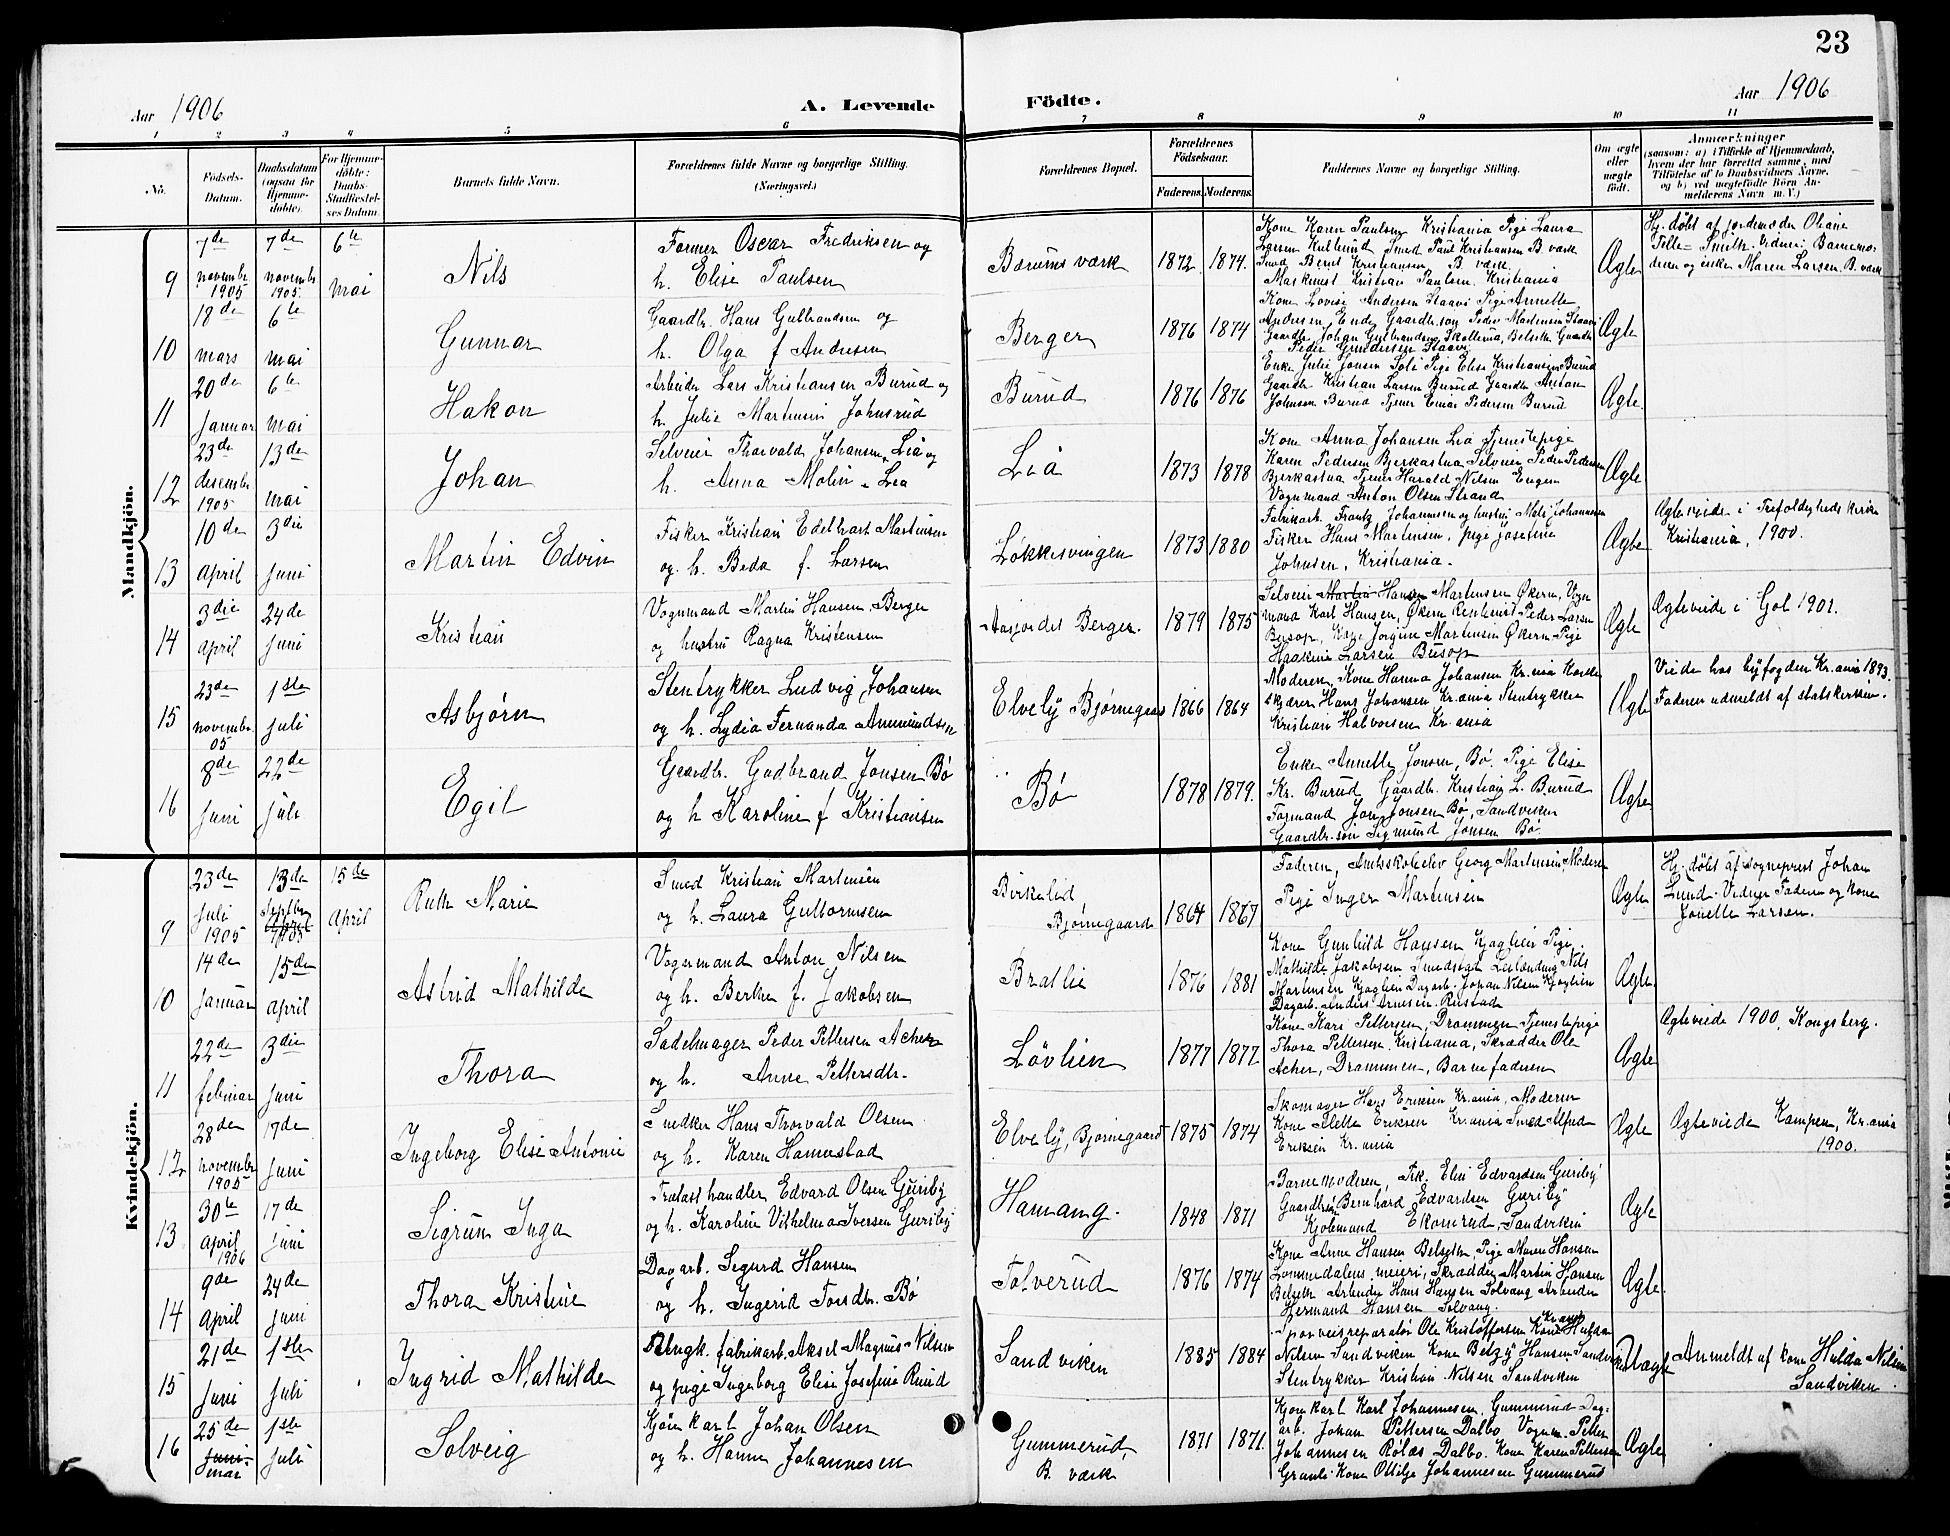 23
Aar 1906
A. Levende Födte.
Aar 1906
1 2 3 4 5 6 7 8 9 10 11
No.
Födsels-Datum.
Daabsdatum (ogsaa for Hjemme-döbte).
For Hjemme-döbte: Daabs-Stadfæstel-ses Datum.
Barnets fulde Navn.
Forældrenes fulde Navne og borgerlige Stilling. (Næringsvei.)
Forældrenes Bopæl.
Forældrenes Födselsaar.
Faderens. Moderens.
Faddernes Navne og borgerlige Stilling.
Om ægte eller uægte födt.
Anmærkninger
(saasom: a) i Tilfælde af Hjemmedaab, hvem der har forrettet samme, med Tilföielse af to Daabsvidners Navne, og b) ved uægtefödte Börn An-melderens Navn m. V.)
Mandkjön.
9 7de november 1905 7de november 1905 6te mai Nils
Former Oscar Fredriksen og
h. Elise Paulsen
Bærums værk 1872 1874.
Kone Karen Paulsen Kristiania Pige Laura
Larsen Smed Paul Kristiansen B. værk
Smed Bernt Kristiansen B. værk.
Maskinist Kristian Paulsen. Kristiania
Ægte
Hj. døbt af jordemoder Oliane
Vidner: Barnemo-
deren og enke Maren Larsen. B. værk
10 18de mars 6te mai Gunnar
Gaardbr. Hans Gulbrandsen og
h. Olga f Andresen
Berger 1876 1874
Kone Lovise Andersen Staavi Pige Annette
Andresen, Ende Gaardbr.søn Peder Martinsen Staavi
Gaardbr. Johan Gulbrandsen Skollerud, Belseth Gaardbr
Peder Gundersen Staavi
Ægte
11 20de Januar 6te mai Hakon
Arbeider Lars Kristiansen Burud og
h. Julie Martinsen Johnsrud
Burud 1876 1876
Enke Julie Jonsen Pige Elise Kristiansen Burud
Gaardb. Kristian Larsen Burud Gaardb. Anton
Johnsen Burud Tjener Einar Pedersen Burud
Ægte.
12 23de desember 1905 13de mai Johan
Selveier Thorvald Johansen Lia og
h. Anna Molin Lia
Lia 1873 1878
Kone Anna Johansen Lia Tjenestepige
Karen Pedersen Bjerkastua Selveier Peder Pedersen
Bjerkastua Tjener Harald Nilsen Engen
Vognmand Anton Olsen Strand
Ægte
13 10de April 3die Juni Martin Edvin
Fisker Kristian Edelhart Martinsen
og h. Beda f. Larsen
Løkkesvingen 1873 1880
Fabrikarb. Frantz Johannsen og hustru Johannesen
Fisker Hans Martinsen, pige Josefine
Johnsen, Kristiania.
Ægte
Ægteviede i Trefoldigheds kirke
Kristiania, 1900.
14 3die April 24de Juni Kristian
Vognmand Martin Hansen Berger
og hustru Ragna Kristensen
Aasjordet Berger. 1879 1875
Selveier Hans Martinsen Økern, Vogn
mand Karl Hansen, Økern Peder Larsen
Busop, Kone Jørgine Martinsen Økern Pige
Larsen Busop
Ægte
Ægteviede i Gol 1902.
15 23de november 05 1ste Juli Asbjørn
Stentrykker Ludvig Johansen
og h. Lydia Fernanda Ammundsen
Elvely Bjørnegaard 1866 1864
Moderen, Kone Hanna Johansen Kr.ania
skjærer Hans Johansen Kr.ania Stentrykker
Kristian Halvorsen Kr.ania
Ægte
Viede hos byfogden Kr.ania 1893.
Faderen udmeldt af statskirken.
16 8de Juni 22de Juli Egil
Gaardb. Gudbrand Jonsen Bø
og h Karoline f Kristiansen
Bø 1878 1879.
Enke Annette Jonsen, Bø. Pige Elise
Kr. Burud Gaardb. Kristian L. Burud
Formand Jon Jonsen Bø, Sandviken
Gaardbr.søn Sigmund Jonsen Bø
Ægte
Kvindekjön.
9 23de Juli 1905 13de Septbr 1905 15de April Ruth Marie
Smed Kristian Martinsen
og h. Laura Guttormsen
Birkelid
Bjørnegaard 1864 1867
Faderen, Amtskoleelev Georg Martinsen, Moderen
Pige Inger Martinsen
Ægte
Hj. døbt af sogneprest Johan
Lund. Vidner Faderen og kone
Larsen.
10 14de Januar 15de April Astrid Mathilde
Vognmand Anton Nilsen
og h. Berthe f. Jakobsen
Bratlie 1876 1881
Kone Gunhild Hansen Kjaglien Pige
Mathilde Jakobsen Nils
Martinsen Kjaglien Dagarb. Johan Nilsen Kjaglien
Dagarb. Anders Arnesen Rustad
Ægte.
11 22de februar 3die Juni Thora
Sadelmager Peder Pettersen Acher
og h. Anne Pettersdtr.
Løvlien 1877 1877
Kone Kari Pettersen, Drammen Tjenestepige
Thora Pettersen Kristiania, Skrædder Ole
Acher, Drammen, Barnefaderen
Ægte
Ægteviede 1900, Kongsberg.
12 28de november 1905 17de Juni Ingeborg Elise Antonie
Snedker Hans Thorvald Olsen
og h. Karen Hannestad
Elvely, Bjørnegaard 1875 1874
Skomager Hans Eriksen Kr.ania, Moderen
Kone Alette Eriksen Kr.ania Smed Alfred
Eriksen Kr.ania
Ægte
Ægteviede Kampen, Kr.ania
1900.
13 30te April 1906 17de Juni Sigrun Inga
Trælasthandler Edvard Olsen Gureby
og h. Karoline Vilhelma Iversen Gureby
Hamang. 1848 1871
Barnemoderen, Frk. Elin Edvardsen Gureby
Gaardbr. Bernhard Edvardsen Gureby
Kjøbmand Ekornrud, Sandviken
Ægte
14 9de April 24de Juni Thora Kristine
Dagarb. Sigurd Hansen
og h. Ingerid Torsdtr. Bø
Tolverud 1876 1874
Kone Anne Hansen Belseth, Pige Maren Hansen
Lommedalens meieri, Skrædder Martin Hansen
Belseth Arbeider Hans Hansen Solvang Arbeider
Hermand Hansen Solvang.
Ægte.
15 21de Juni 1ste Juli Ingrid Mathilde
Ungk. fabrikarb. Aksel Magnus Nilsen
og pige Ingeborg Elise Josefine Ruud
Sandviken 1885 1884
Sporveisreparatør Ole Kristoffersen Kr.ania Kone Hulda
Nilsen Sandviken Kone Betzy Hansen Sandviken
Stentrykker Kristian Nilsen Sandviken
Uægte
Anmeldt af kone Hulda Nilsen
Sandviken
16 25de Juni mai 1ste Juli Solveig
Kjørekarl Johan Olsen
og h. Hanna Johannesen
Gummerud,
B. værk 1871 1871.
Kjørekarl Karl Johannesen, Gummerud Dag-
arb. Johan Pettersen Dalbo Vognm. Petter
Johannesen Dalbo. Kone Karen Pettersen
Granli Kone Ottilje Johannesen Gummerud
Ægte